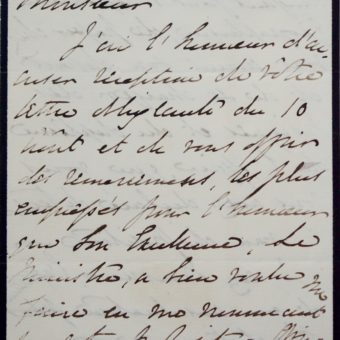 Monsieur
J'ai l'honneur d'ac-
cuser réception de vôtre
lettre obligeante du 10
août et de vous offrir
des remerciements, les plus
empressés pour l'honneur
que Son Excellence, Le
Ministre, a bien voulu
me
faire en me nommant